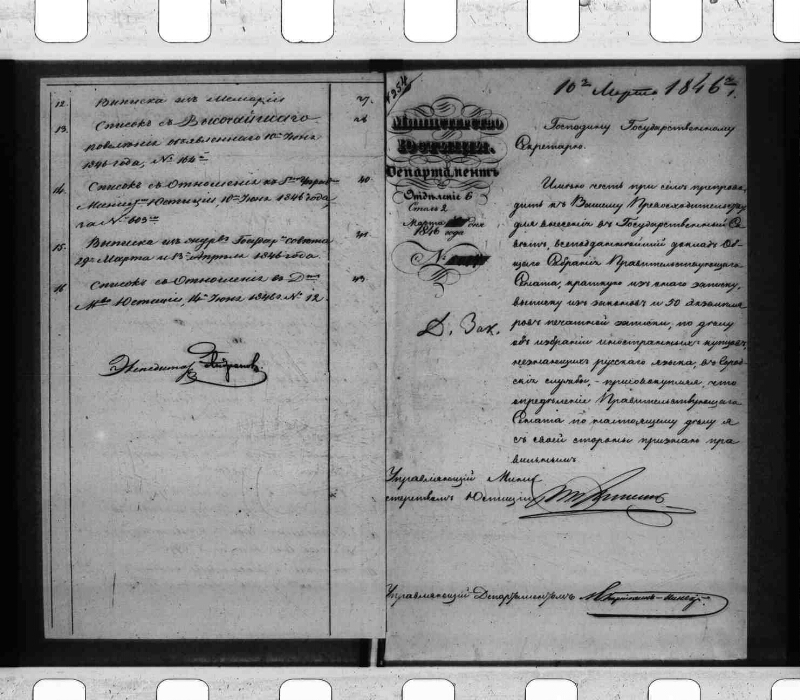 12. Выписка изъ Меморіи 27.
13. Списокъ съ Высочайшаго
повелѣнія объявленнаго 10го Іюня
1846 года, №
14. Списокъ съ Отношенія къ
Юстиціи 10го Іюня 1846 года
за №
15. Выписка изъ журн. Государ. Совѣта
29го Марта и Апрѣля 1846 года.
16. Списокъ съ Отношенія въ Д.
Мва Юстиціи, 14го Іюня 1846 г № 12.
Экспедиторъ
10го Марта 1846го
МИНИСТЕРСТВО
ЮСТИЦІИ.
Департаментъ
Отдѣленіе 6
Столъ 2
Марта дня
1846 года
№
Д. Зак.
Господину Государственному
Секретарю.
Имѣю честь при семъ препрово-
дить къ Вашему Превосходительству
для внесенія въ Государственный Со-
вѣтъ, всеподданнѣйшій докладъ Об-
щаго Собранія Правительствующаго
Сената, краткую изъ него записку,
выписку изъ законовъ и 50 экземпля-
ровъ печатной записки, по дѣлу
объ избраніи иностранныхъ купцовъ,
незнающихъ русскаго языка, въ Город-
скія службы, - присовокупляя, что
опредѣленіе Правительствующаго
Сената по настоящему дѣлу я
съ своей стороны признаю пра-
вильнымъ.
Управляющій Мини-
стерствомъ Юстиціи
Управляющій Департаментомъ